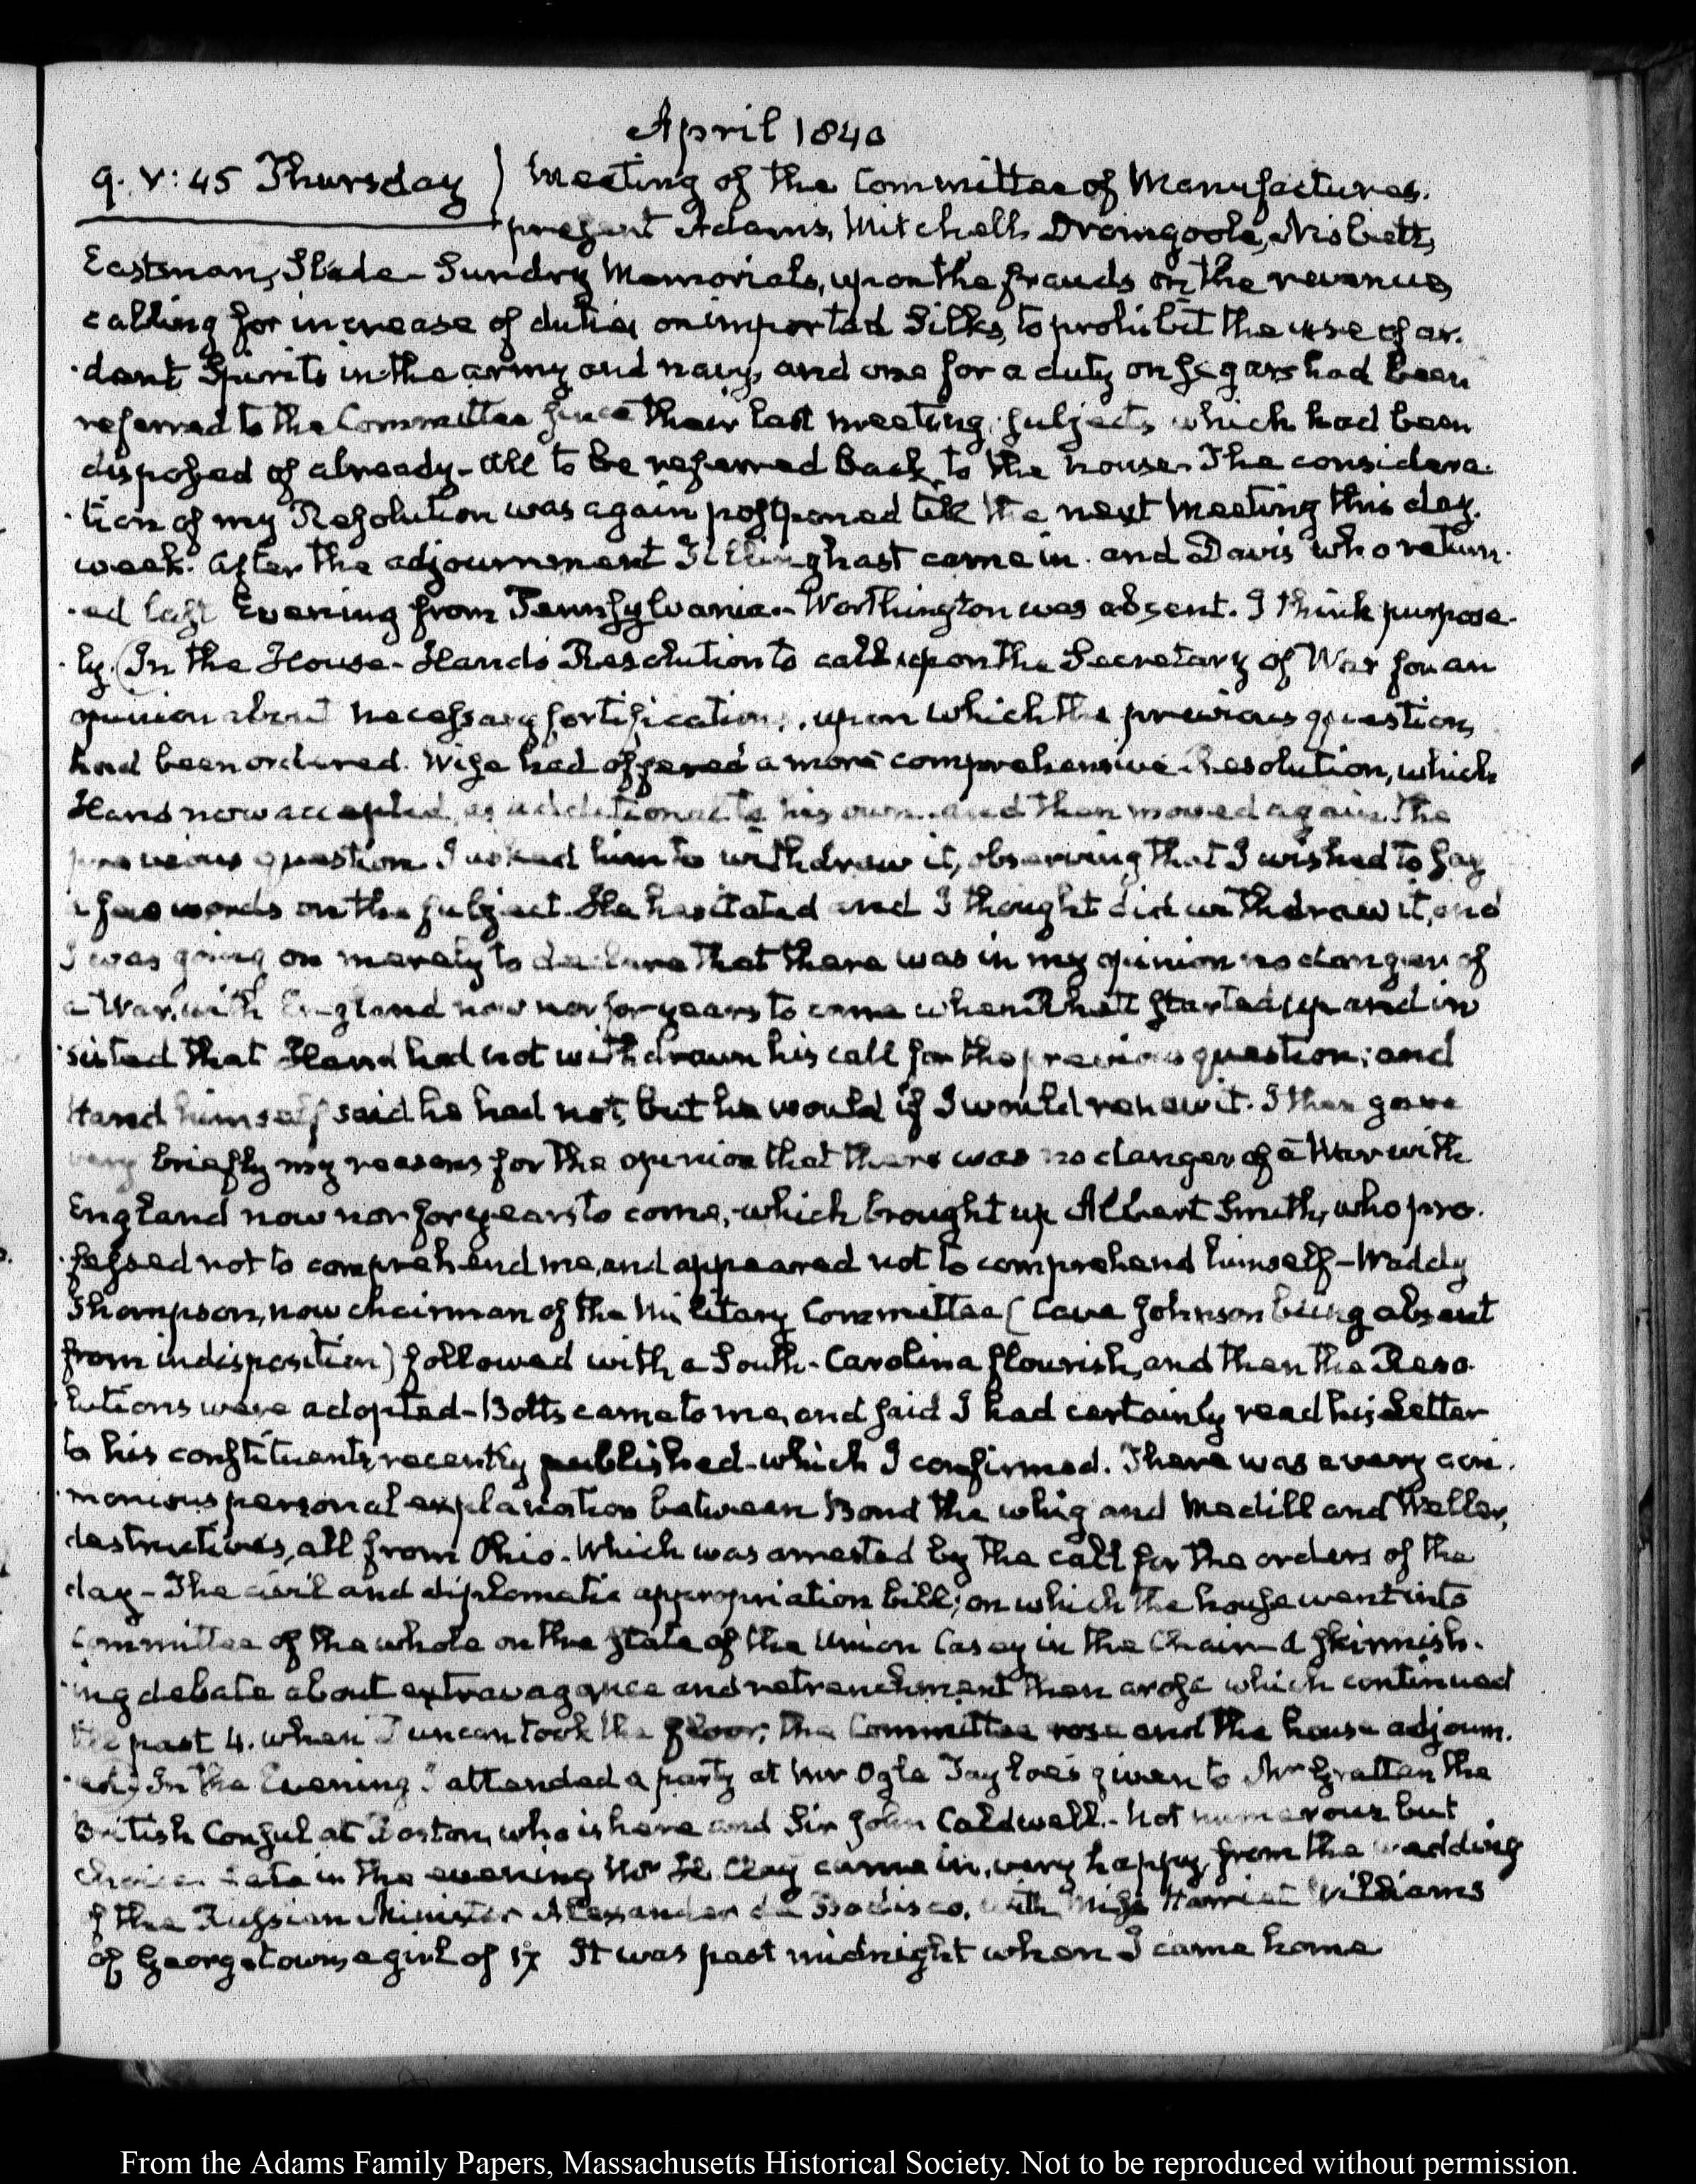 April 1840
9. V:45 Thursday) Meeting of the Committee of Manufactures.
present Adams, Mitchell, Dromgoole, Nisbett,
Eastman, Slade - Sundry Memorials, upon the frauds on the revenue,
calling for increase of duties on imported Silks, to prohibit the use of ar-
-dent Spirits in the army and navy, and one for a duty on segars had been
referred to the Committee since their last meeting, subjects which had been
disposed of already - All to be referred back to the house. The considera-
-tion of my Resolution was again postponed till the next Meeting this day
week. After the adjournment Tillinghast came in. and Davis who return-
-ed last Evening from Pennsylvania. - Worthington was absent. I think purpose-
-ly. (In the House - Hand's Resolution to call upon the Secretary of War for an
opinion about necessary fortifications, upon which the previous question,
had been ordered. Wise had offered a more comprehensive Resolution, which
Hand now accepted, as additional to his own, and then moved again the
previous question. I asked him to withdraw it, observing that I wished to say
a few words on the subject. He hesitated and I thought did withdraw it, and
I was going on merely to declare that there was in my opinion no danger of
a War, with England now nor for years to come when Rhett started up and in-
-sisted that Hand had not withdrawn his call for the previous question; and
Hand himself said he had not, but he would if I would renew it. I then gave
very briefly my reasons for the opinion that there was no danger of a War with
England now nor for years to come, - which brought up Albert Smith, who pro-
-fessed not to comprehend me, and appeared not to comprehend himself - Waddy
Thompson, now chairman of the Military Committee (Cave Johnson being absent
from indisposition) followed with a South-Carolina flourish, and then the Reso-
-lutions were adopted - Botts came to me, and said I had certainly read his Letter
to his constituents recently published - which I confirmed. There was a very acri-
-monious personal explanation between Bond the whig and Medill and Weller,
destructives, all from Ohio. Which was arrested by the call for the orders of the
day - The civil and diplomatic appropriation bill; on which the house went into
Committee of the whole on the state of the Union Casey in the Chair - A skirmish-
-ing debate about extravagance and retrenchment then arose which continued
till past 4. when Duncan took the floor; the Committee rose and the house adjourn-
-ed) In the Evening I attended a party at Mr Ogle Tayloe's given to Mr Grattan the
British Consul at Boston, who is here and Sir John Caldwell. - Not numerous but
choice. Late in the evening Mr H. Clay came in, very happy, from the wedding
of the Russian Minister Alexander de Bodisco, with Miss Harriet Williams
of Georgetown, a girl of 17 It was past midnight when I came home
From the Adams Family Papers, Massachusetts Historical Society. Not to be reproduced without permission.